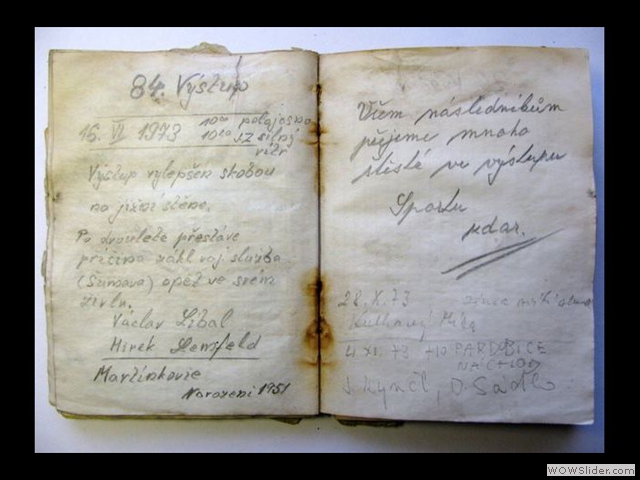 84. Výstup
15. VI 1973 10°° polojasno
10°° JZ silný
vítr
Výstup vylepšen skobou
na jižní stěně.
Po dvouleté přestávce
příčina zákl. voj. služba
(Šumava) opět ve svém
živlu.
Václav Libal
Mirek
Martínkovice
Narozeni 1951
Všem následníkům
přejeme mnoho
štěstí ve výstupu
Sportu
zdar.
28. X. 73 zima
4. XI. 73 +10 PARDUBICE
NÁCHOD
WOWSlider.com